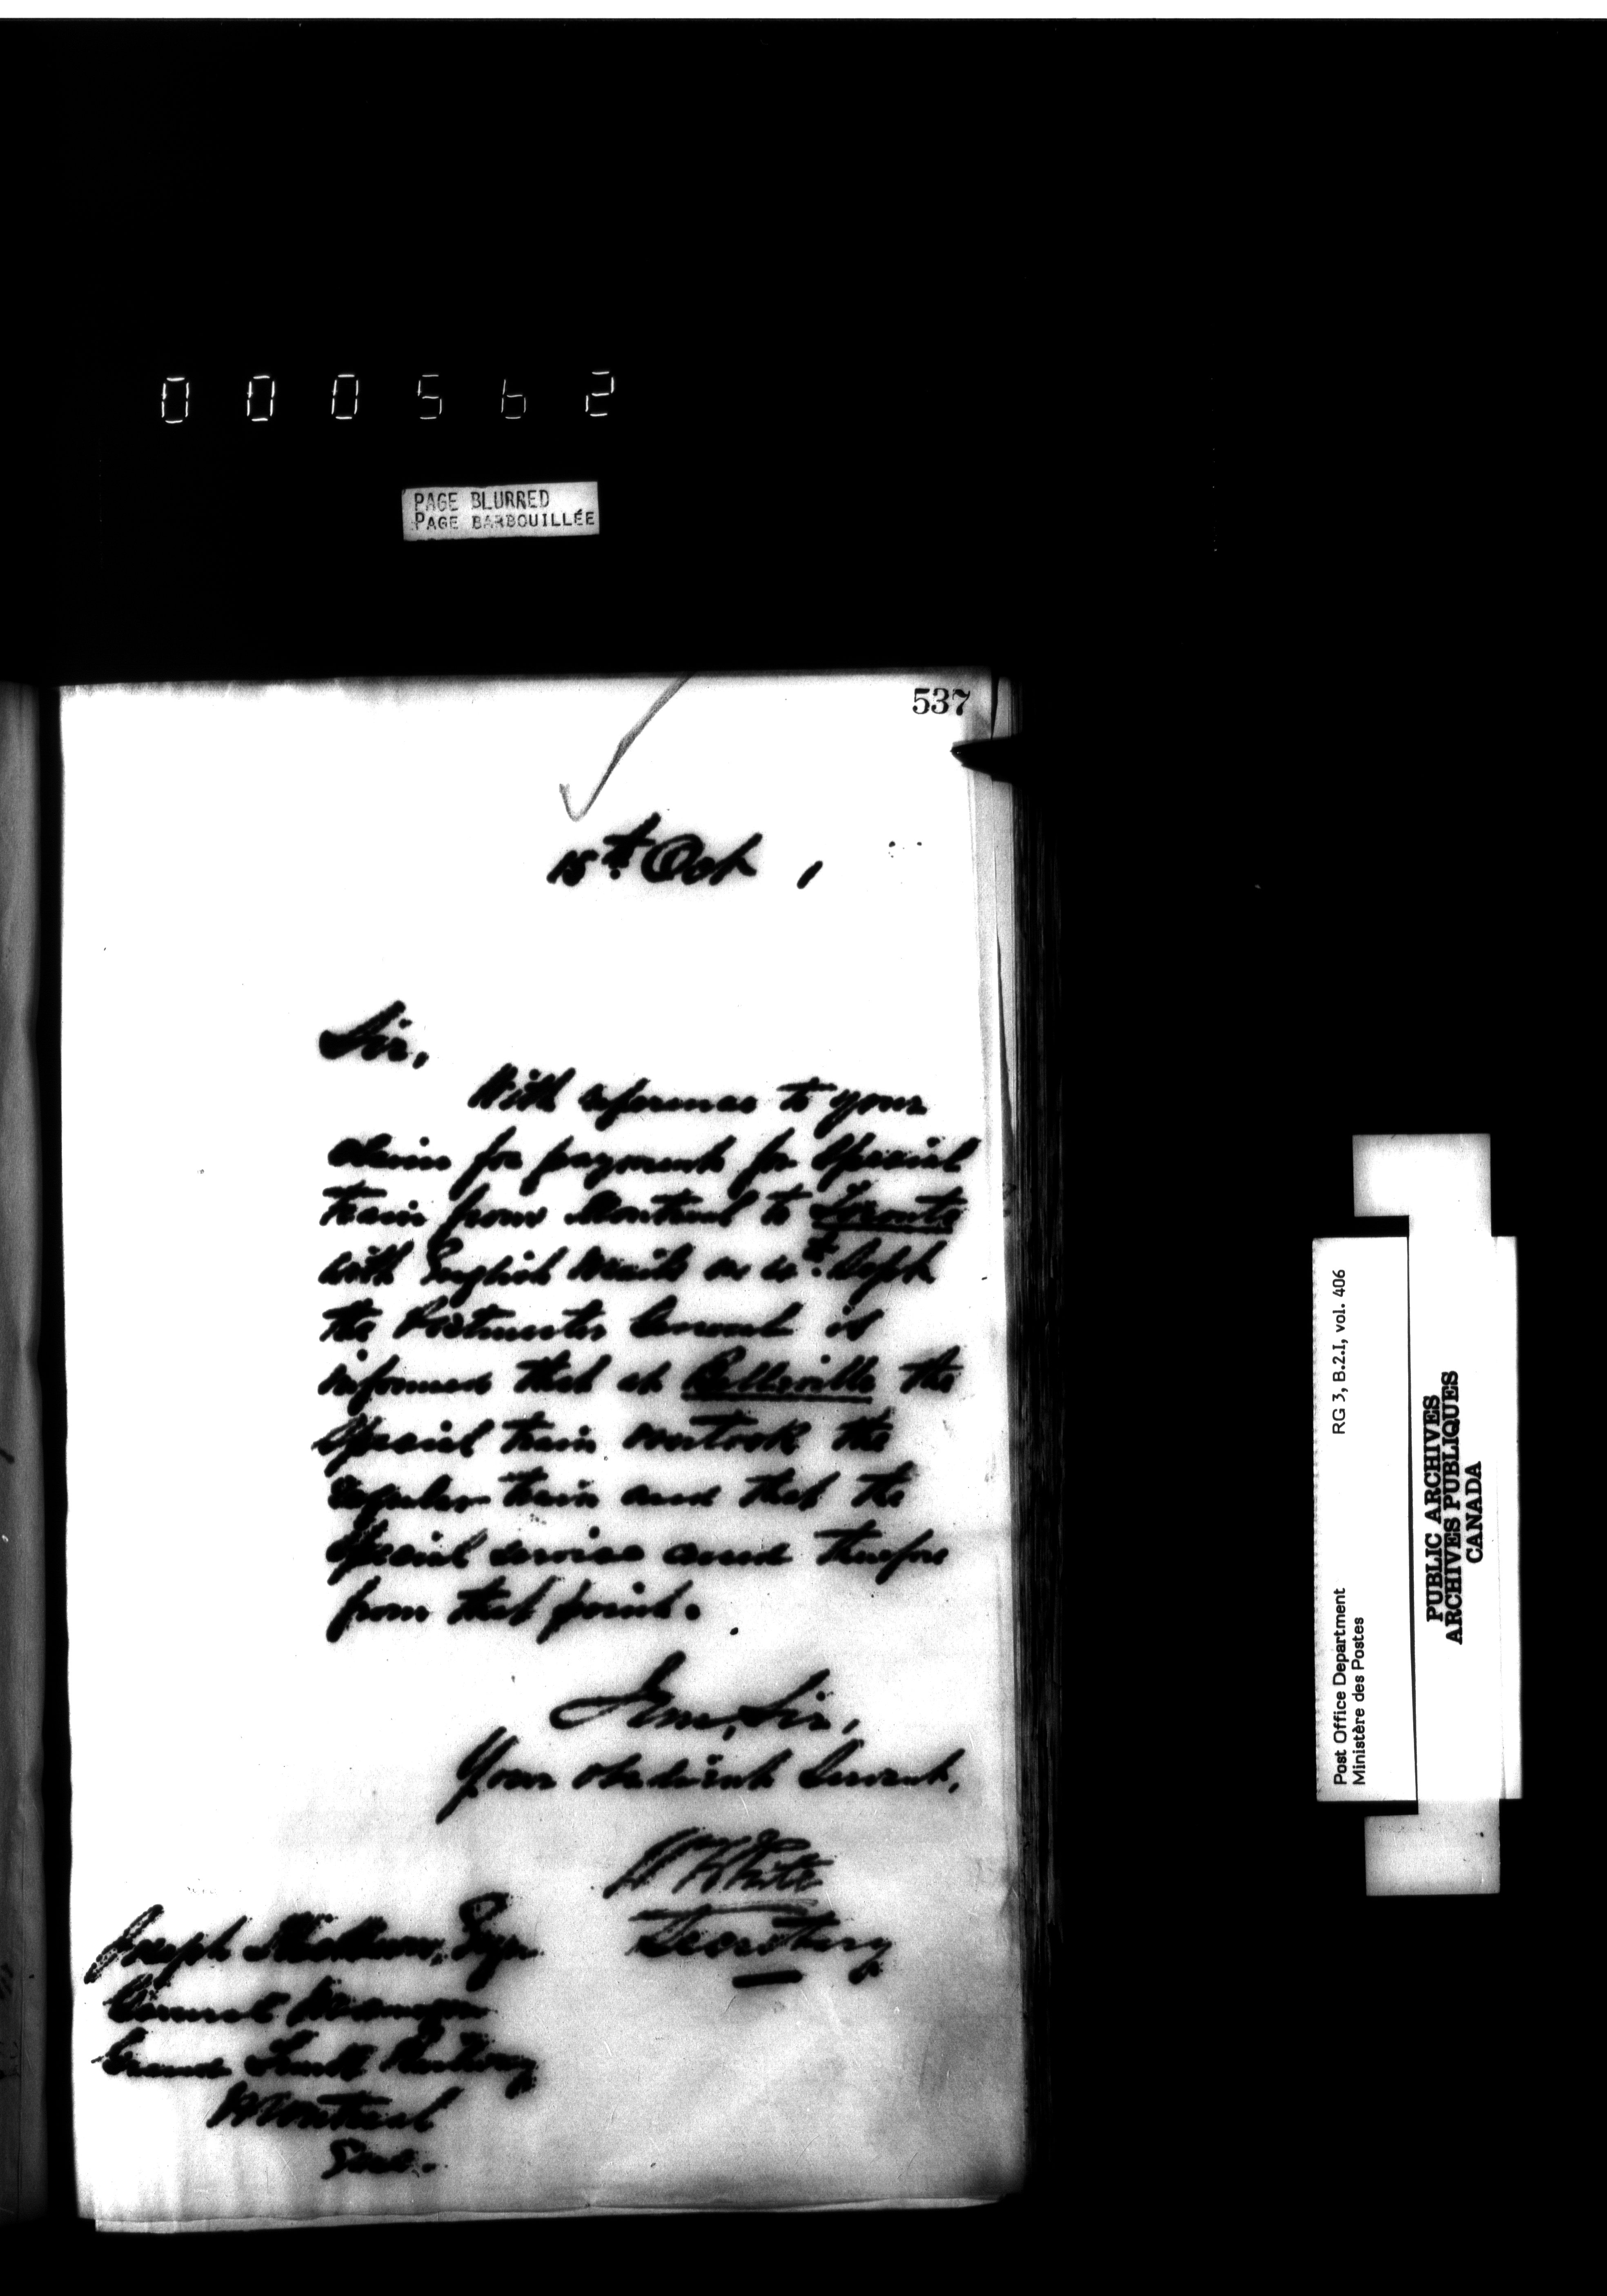 000562
PAGE BLURRED
PAGE BARBOUILLÉE
537
15th. Oct ,
Sir,
With reference to your
claim for payment for Special
train from Montreal to Toronto
with English Mails on Sept
the Postmaster General is
informed that at Belleville the
Special train overtook the
regular train and that the
Special service ceased therefore
from that point.
I am, Sir,
Your obedient Servant,
White
Secretary
Joseph Esqr.
General Manager
Grand Trunk Railway
Montreal
Que.
Post Office Department RG 3, B.2.I, vol. 406
Ministère des Postes
PUBLIC ARCHIVES
ARCHIVES PUBLIQUES
CANADA